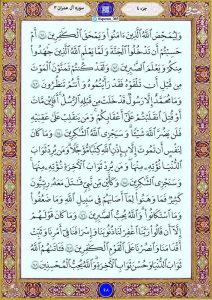 جزء ٤
سوره آل عمران ٣
وَلِيُمَحِّصَ اللَّهُ الَّذِينَ ءَامَنُوا وَيَمْحَقَ الْكَٰفِرِينَ ١٤١ أَمْ
حَسِبْتُمْ أَن تَدْخُلُوا الْجَنَّةَ وَلَمَّا يَعْلَمِ اللَّهُ الَّذِينَ جَٰهَدُوا
مِنكُمْ وَيَعْلَمَ الصَّٰبِرِينَ ١٤٢ وَلَقَدْ كُنتُمْ تَمَنَّوْنَ الْمَوْتَ
مِن قَبْلِ أَن تَلْقَوْهُ فَقَدْ رَأَيْتُمُوهُ وَأَنتُمْ تَنظُرُونَ ١٤٣
وَمَا مُحَمَّدٌ إِلَّا رَسُولٌ قَدْ خَلَتْ مِن قَبْلِهِ الرُّسُلُ أَفَإِيْن مَّاتَ
أَوْ قُتِلَ انقَلَبْتُمْ عَلَىٰ أَعْقَٰبِكُمْ وَمَن يَنقَلِبْ عَلَىٰ عَقِبَيْهِ
فَلَن يَضُرَّ اللَّهَ شَيْـًٔا وَسَيَجْزِي اللَّهُ الشَّٰكِرِينَ ١٤٤ وَمَا كَانَ
لِنَفْسٍ أَن تَمُوتَ إِلَّا بِإِذْنِ اللَّهِ كِتَٰبًا مُّؤَجَّلًا وَمَن يُرِدْ ثَوَابَ
الدُّنْيَا نُؤْتِهِ مِنْهَا وَمَن يُرِدْ ثَوَابَ الْءَاخِرَةِ نُؤْتِهِ مِنْهَا
وَسَنَجْزِي الشَّٰكِرِينَ ١٤٥ وَكَأَيِّن مِّن نَّبِيٍّ قَٰتَلَ مَعَهُ رِبِّيُّونَ
كَثِيرٌ فَمَا وَهَنُوا لِمَا أَصَابَهُمْ فِي سَبِيلِ اللَّهِ وَمَا ضَعُفُوا
وَمَا اسْتَكَانُوا وَاللَّهُ يُحِبُّ الصَّٰبِرِينَ ١٤٦ وَمَا كَانَ قَوْلَهُمْ
إِلَّا أَن قَالُوا رَبَّنَا اغْفِرْ لَنَا ذُنُوبَنَا وَإِسْرَافَنَا فِي أَمْرِنَا وَثَبِّتْ
أَقْدَامَنَا وَانصُرْنَا عَلَى الْقَوْمِ الْكَٰفِرِينَ ١٤٧ فَـَٔاتَىٰهُمُ اللَّهُ
ثَوَابَ الدُّنْيَا وَحُسْنَ ثَوَابِ الْءَاخِرَةِ وَاللَّهُ يُحِبُّ الْمُحْسِنِينَ ١٤٨
٦٨